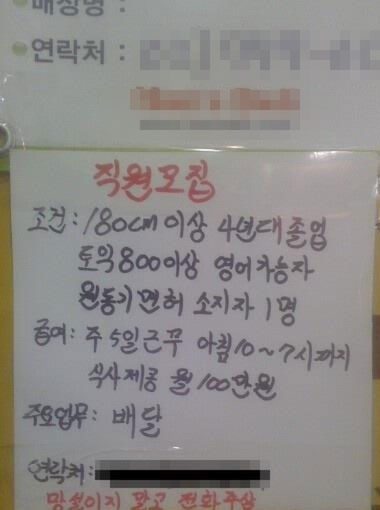 매장명 :
연락처 :
직원모집
조건: 180cm이상 4년대졸업
토익800이상 영어가능자
원동기면허 소지자 1명
급여: 주5일근무 아침10~7시까지
식사제공 월100만원
주요업무: 배달
연락처:
망설이지 말고 전화주삼